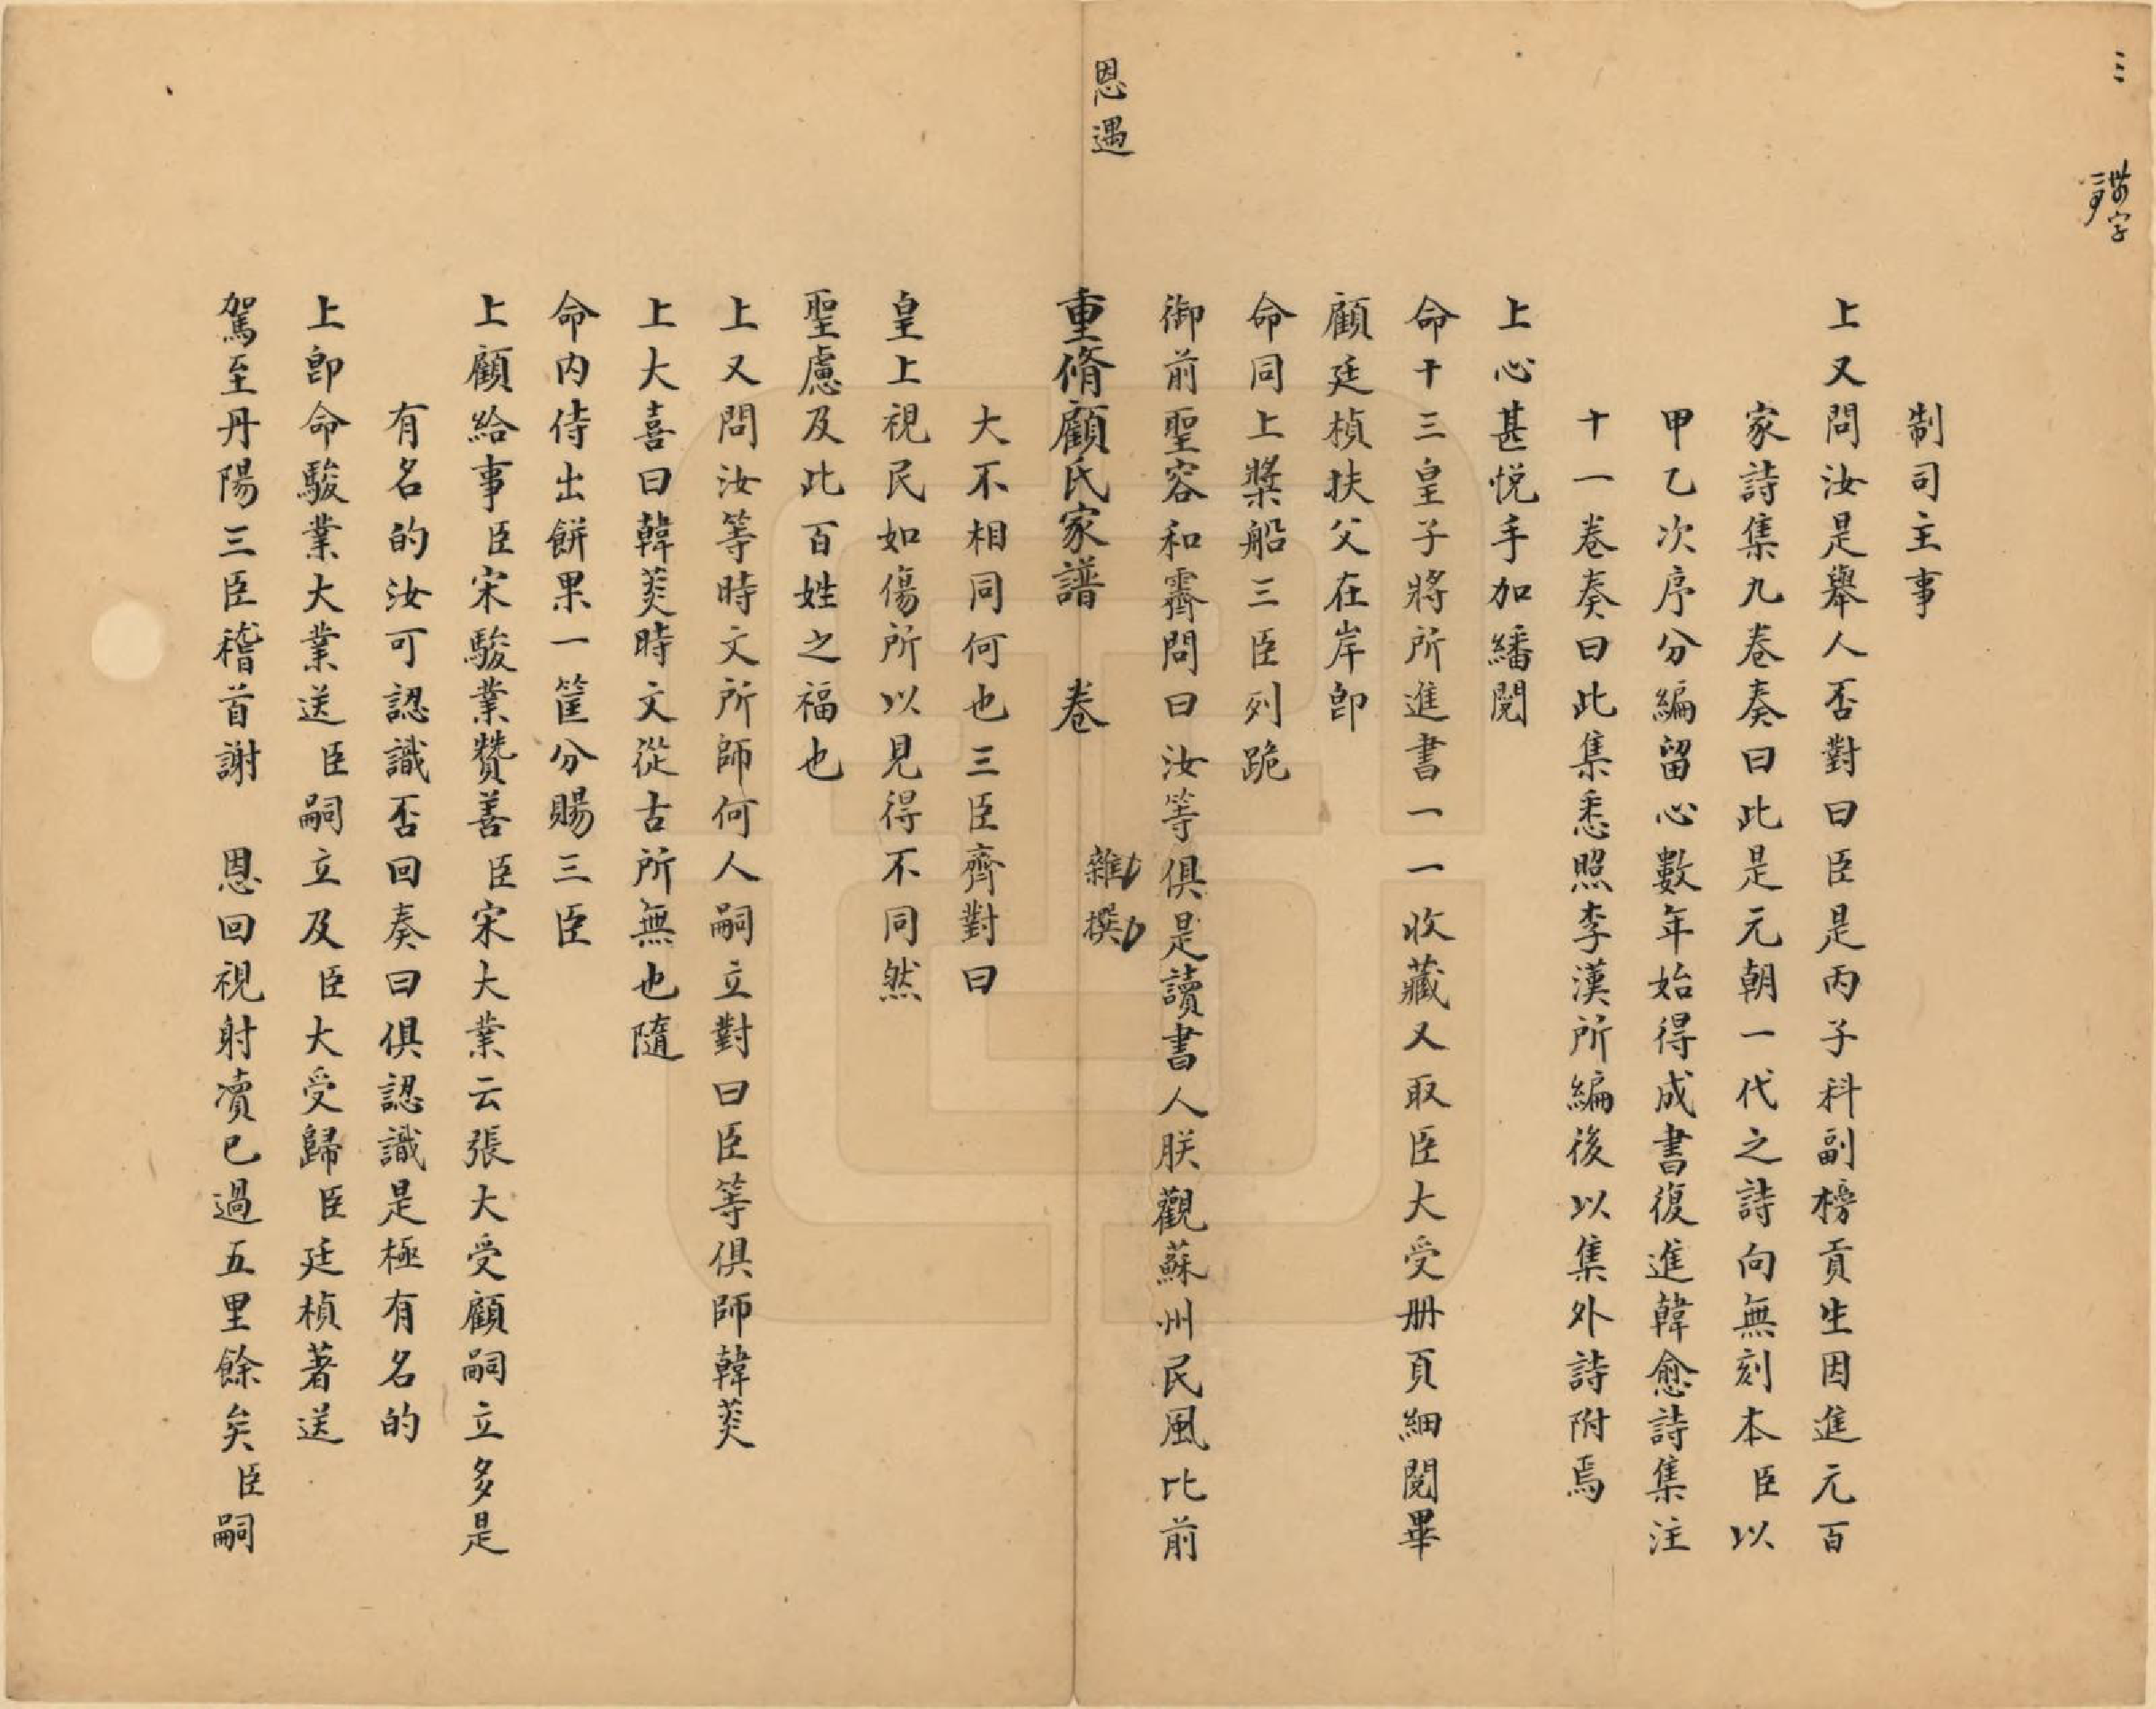 三
制司主事
上又問汝是舉人否對曰臣是丙子科副榜貢生因進元百
家詩集九卷奏曰此是元朝一代之詩向無刻本臣以
甲乙次序分編留心數年始得成書復進韓愈詩集注
十一卷奏曰此集悉照李漢所編後以集外詩附焉
上心甚悅手加繙閱
命十三皇子將所進書一一收藏又取臣大受册頁細閱畢
顧廷楨扶父在岸即
命同上槳船三臣列跪
御前聖容和霽問曰汝等俱是讀書人朕觀蘇州民風比前
恩遇
重脩顧氏家譜 卷 雜撰
大不相同何也三臣齊對曰
皇上視民如傷所以見得不同然
聖慮及此百姓之福也
上又問汝等時文所師何人嗣立對曰臣等俱師韓菼
上大喜曰韓菼時文從古所無也隨
命內侍出餅果一筐分賜三臣
上顧給事臣宋駿業贊善臣宋大業云張大受顧嗣立多是
有名的汝可認識否回奏曰俱認識是極有名的
上即命駿業大業送臣嗣立及臣大受歸臣廷楨著送
駕至丹陽三臣稽首謝 恩回視射瀆已過五里餘矣臣嗣